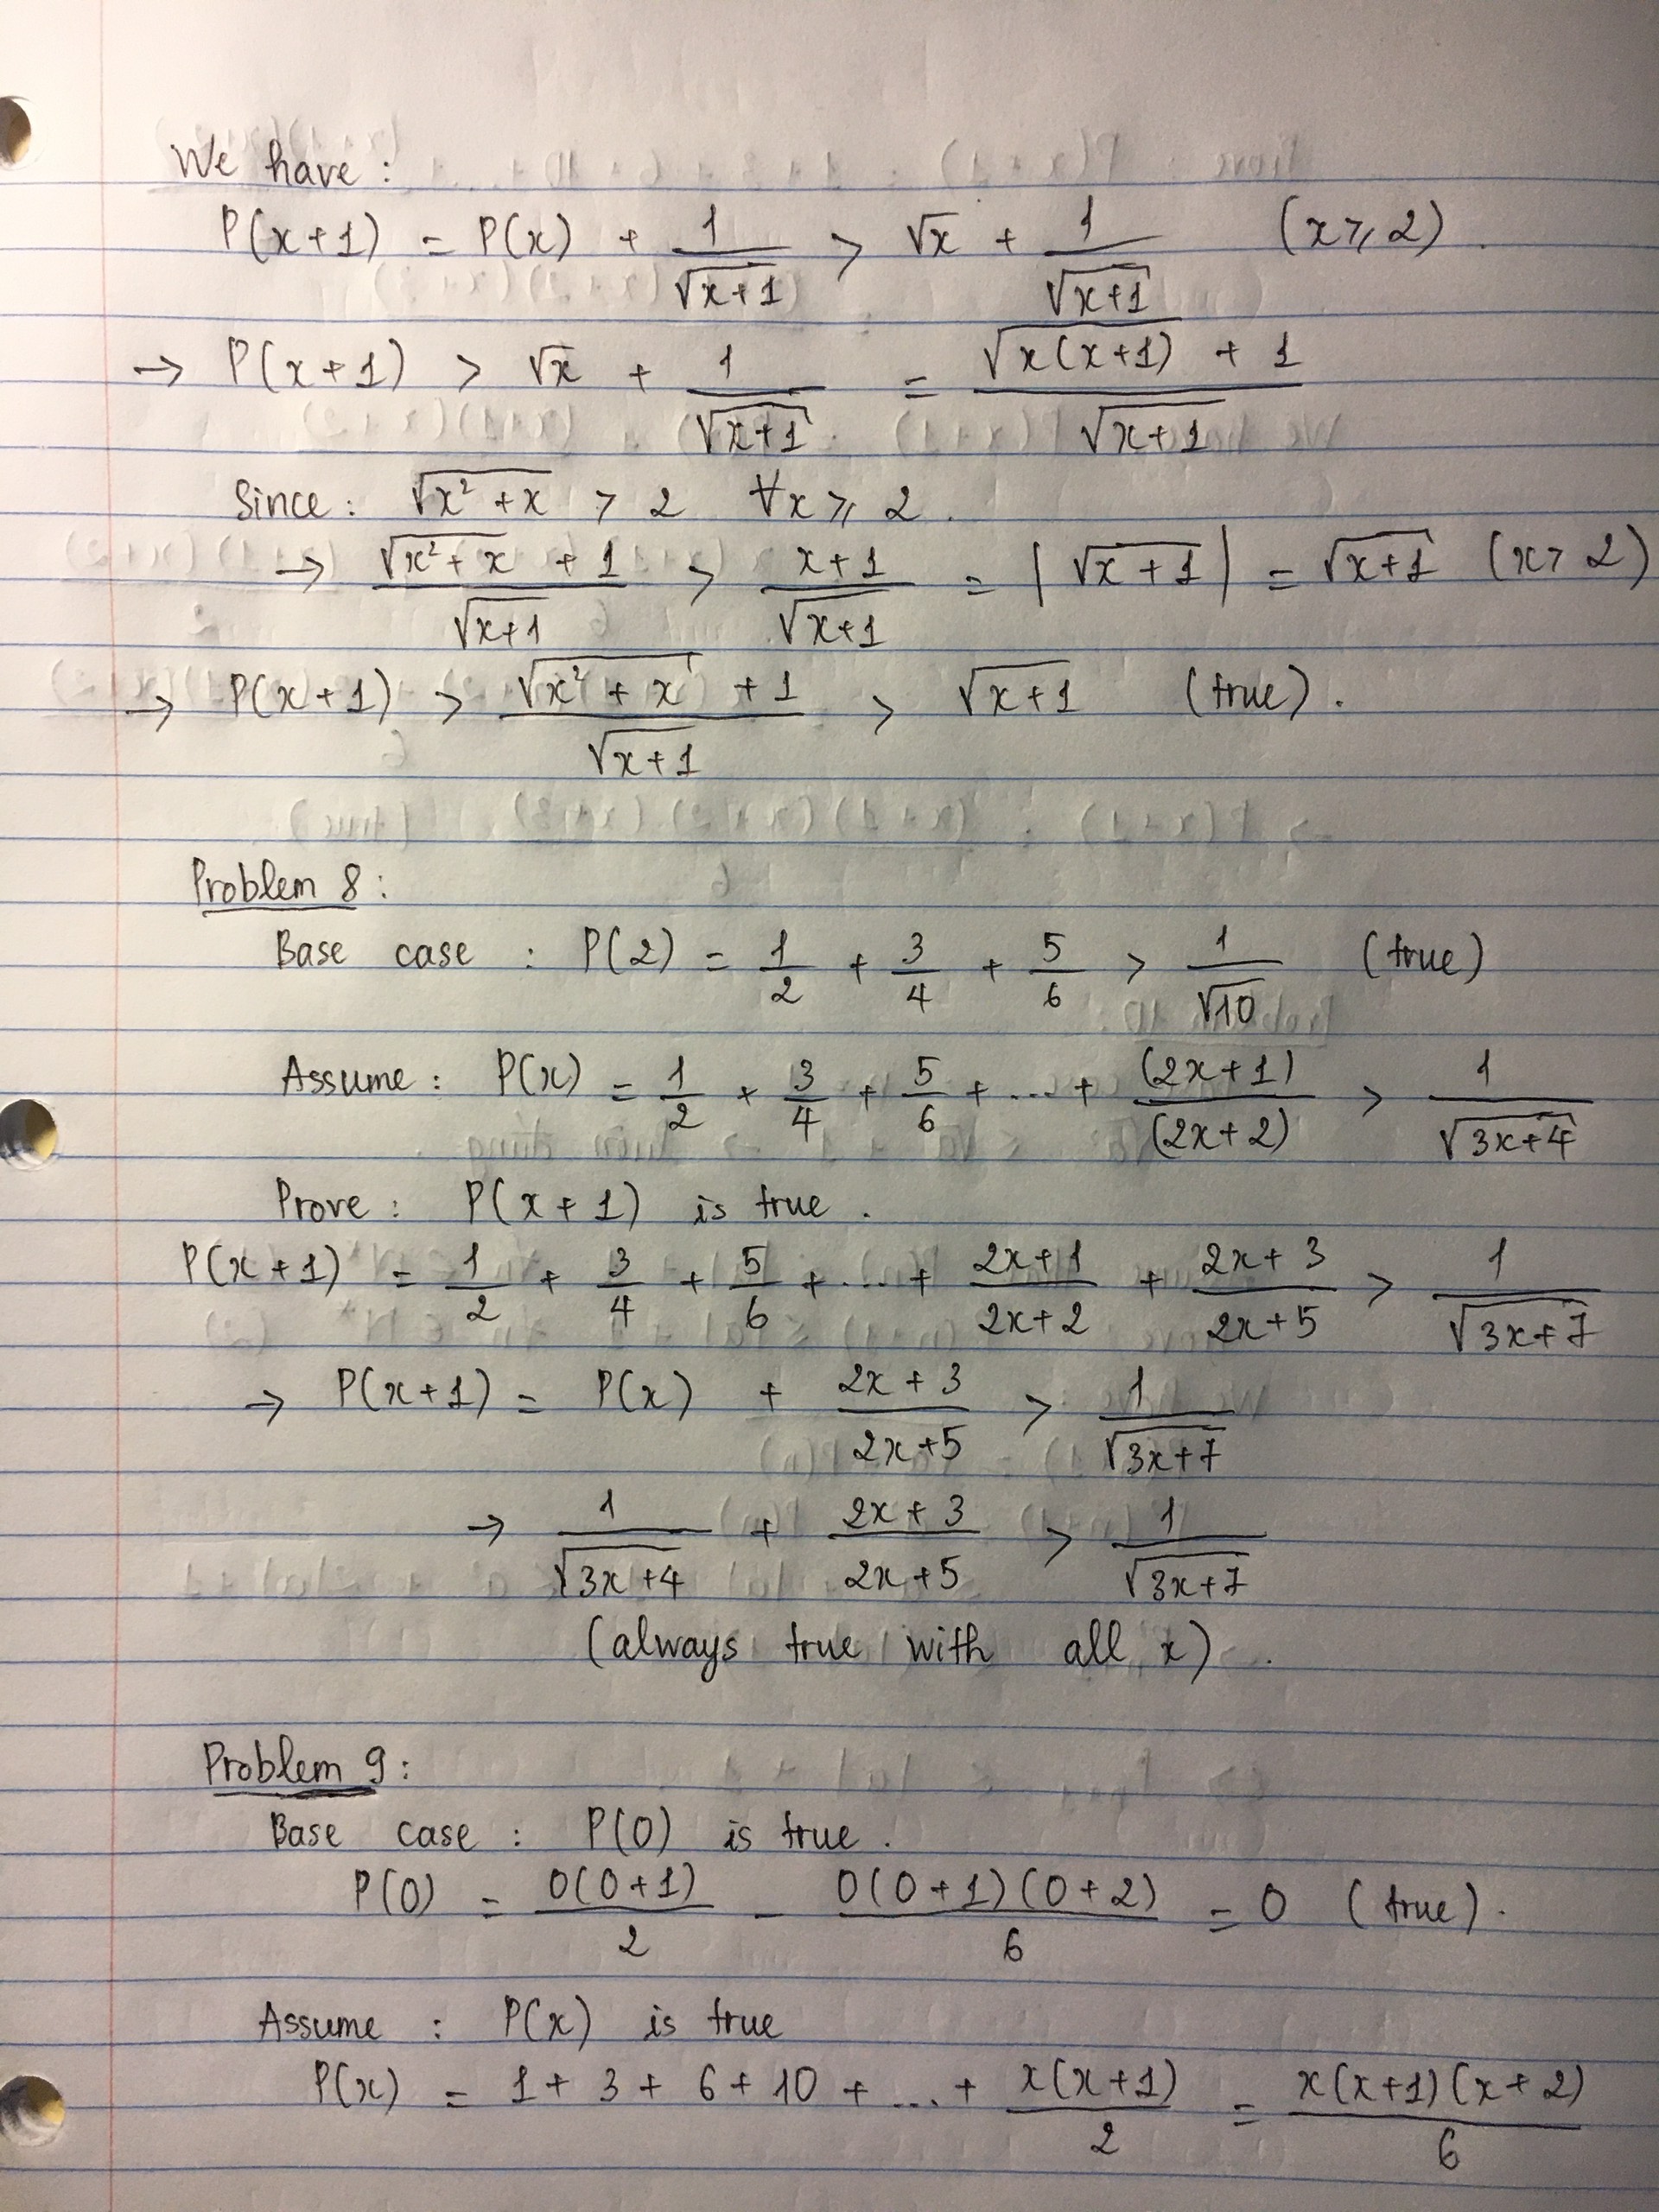 We have:
P(x+1) = P(x) + 1/√(x+1) > √x + 1/√(x+1) (x ≥ 2).
→ P(x+1) > √x + 1/√(x+1) = (√(x(x+1)) + 1)/√(x+1)
Since: √(x² + x) > 2 ∀x ≥ 2.
→ (√(x² + x) + 1)/√(x+1) > (x+1)/√(x+1) = |√(x+1)| = √(x+1) (x > 2)
→ P(x+1) > (√(x² + x) + 1)/√(x+1) > √(x+1) (true).
Problem 8:
Base case : P(2) = 1/2 + 3/4 + 5/6 > 1/√10 (true)
Assume: P(x) = 1/2 + 3/4 + 5/6 + ... + (2x+1)/(2x+2) > 1/√(3x+4)
Prove: P(x+1) is true.
P(x+1) = 1/2 + 3/4 + 5/6 + ... + (2x+1)/(2x+2) + (2x+3)/(2x+5) > 1/√(3x+7)
→ P(x+1) = P(x) + (2x+3)/(2x+5) > 1/√(3x+7)
→ 1/√(3x+4) + (2x+3)/(2x+5) > 1/√(3x+7)
(always true with all x).
Problem 9:
Base case : P(0) is true.
P(0) = 0(0+1)/2 = 0(0+1)(0+2)/6 = 0 (true).
Assume : P(x) is true
P(x) = 1 + 3 + 6 + 10 + ... + x(x+1)/2 = x(x+1)(x+2)/6